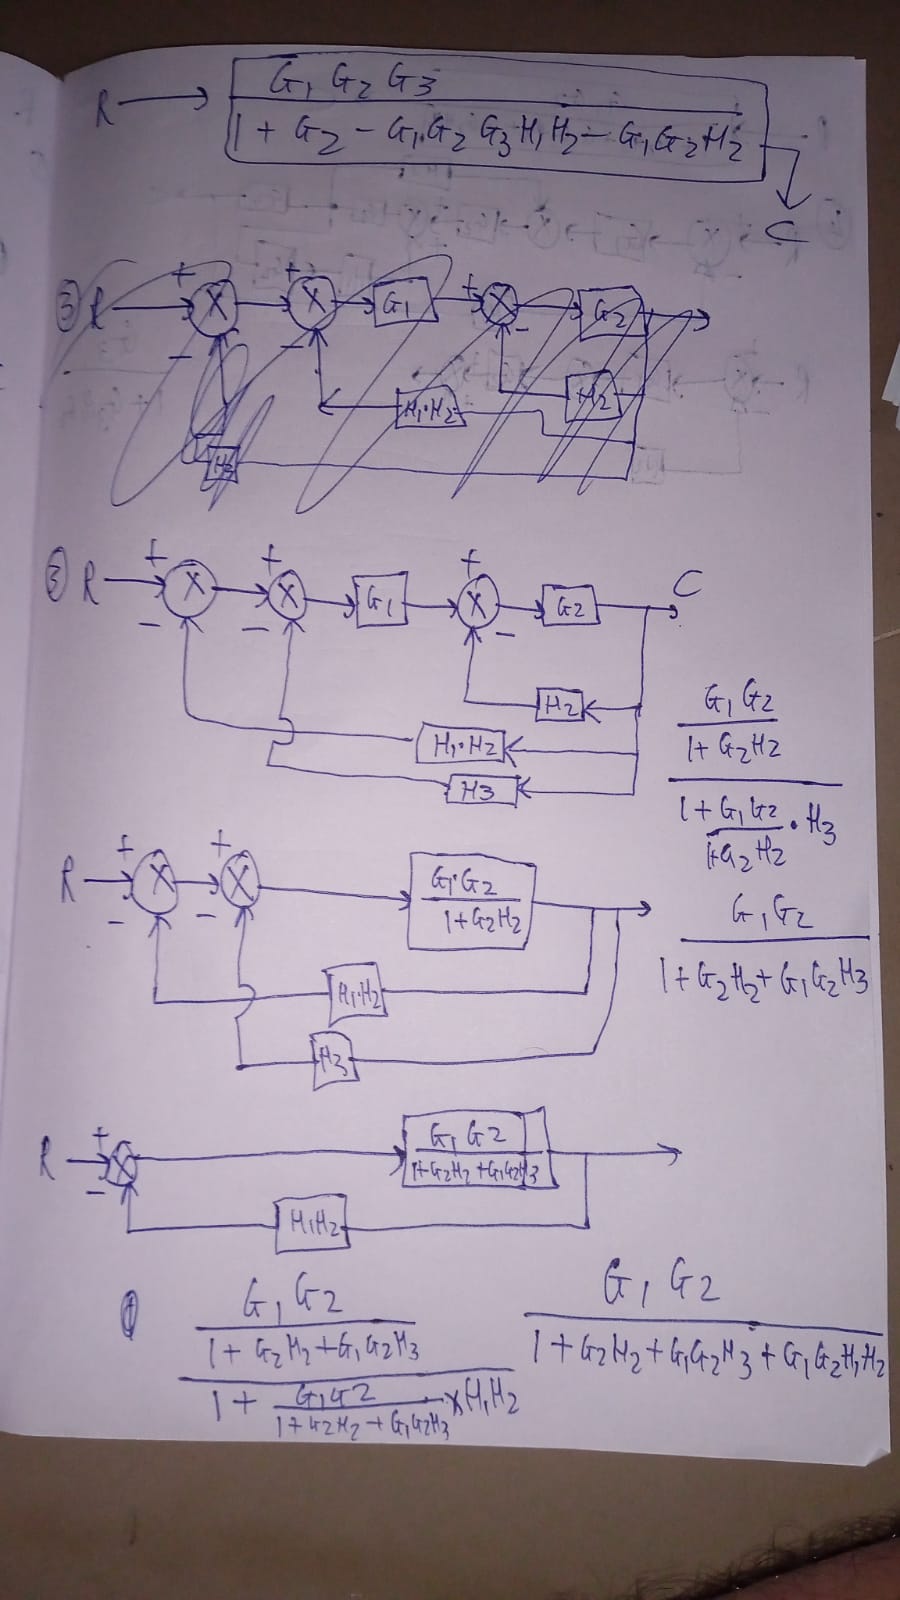 R G1 G2 G3
1 + G2 - G1 G2 G3 H1 H2 - G1 G2 H2
C
3 R + X + X G1 + X G2
- - -
H1·H2 H2
H3
3 R + X + X G1 + X G2 C
- - -
H2
H1·H2
H3
G1 G2
1 + G2H2
1 + G1 G2 · H3
1+G2 H2
R + X + X G1·G2
- - 1+G2H2
G1 G2
1 + G2H2 + G1G2H3
H1·H2
H3
R + X G1 G2
- 1+G2H2+G1G2H3
H1H2
G1 G2
1 + G2H2 + G1G2H3
1 + G1G2 × H1H2
1+G2H2 + G1G2H3
G1 G2
1 + G2H2 + G1G2H3 + G1G2H1H2